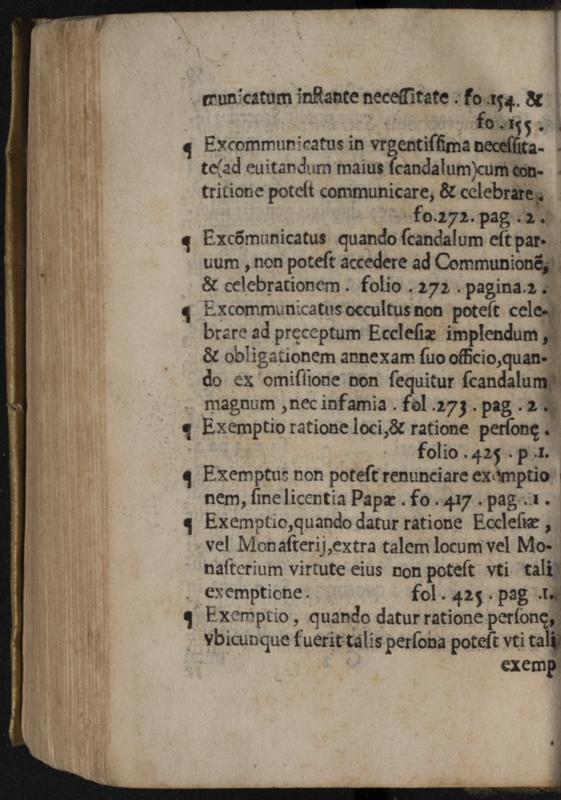 municatum inſtante neceſſitate . fo .154. &
fo .155 .
¶ Excommunicatus in vrgentiſſima neceſſita-
te(ad euitandum maius ſcandalum)cum con-
tritione poteſt communicare, & celebrare .
fo.272. pag . 2 .
¶ Excõmunicatus quando ſcandalum eſt par-
uum , non poteſt accedere ad Communionẽ,
& celebrationem . folio . 272 . pagina.2 .
¶ Excommunicatus occultus non poteſt cele-
brare ad pręceptum Eccleſiæ implendum ,
& obligationem annexam ſuo officio,quan-
do ex omiſſione non ſequitur ſcandalum
magnum , nec infamia . fol .273 . pag . 2 .
¶ Exemptio ratione loci,& ratione perſonę .
folio . 425 . p .1.
¶ Exemptus non poteſt renunciare exemptio
nem, ſine licentia Papæ . fo . 417 . pag . 1 .
¶ Exemptio,quando datur ratione Eccleſiæ ,
vel Monaſterij,extra talem locum vel Mo-
naſterium virtute eius non poteſt vti tali
exemptione . fol . 425 . pag .1.
¶ Exemptio , quando datur ratione perſonę,
vbicunque fuerit talis perſona poteſt vti tali
exemp